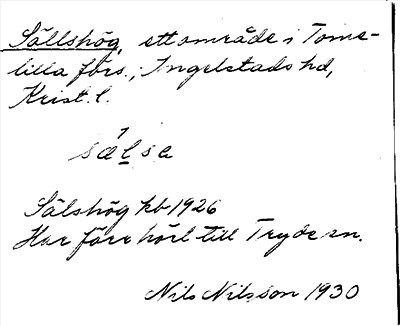 Sällshög, ett område i Tome-
lilla förs., Ingelstads hd,
Krist. l.
sälsa
Sälshög kb 1926
Har förr hört till Tryde sn.
Nils Nilsson 1930